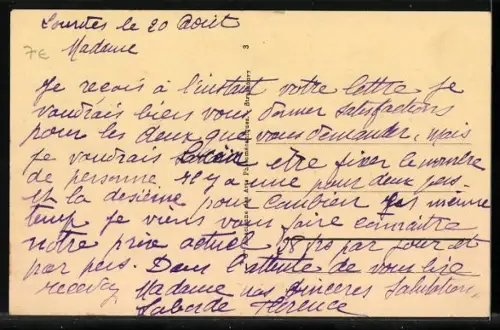 Lourdes le 20 Août
7€
Madame
3
Je reçois à l'instant votre lettre je
voudrais bien vous donner satisfactions
pour les deux que vous demander, mais
je voudrais savoir etre fixer le nombre
de personne. Il y a une pour deux pers.
et la desième pour Combien meme
temp je viens vous faire connaître
notre prix actuel 38 frs par jour et
par pers. Dans l'attente de vous lire
recevez Madame nos sincères Salutations
Laborde Florence